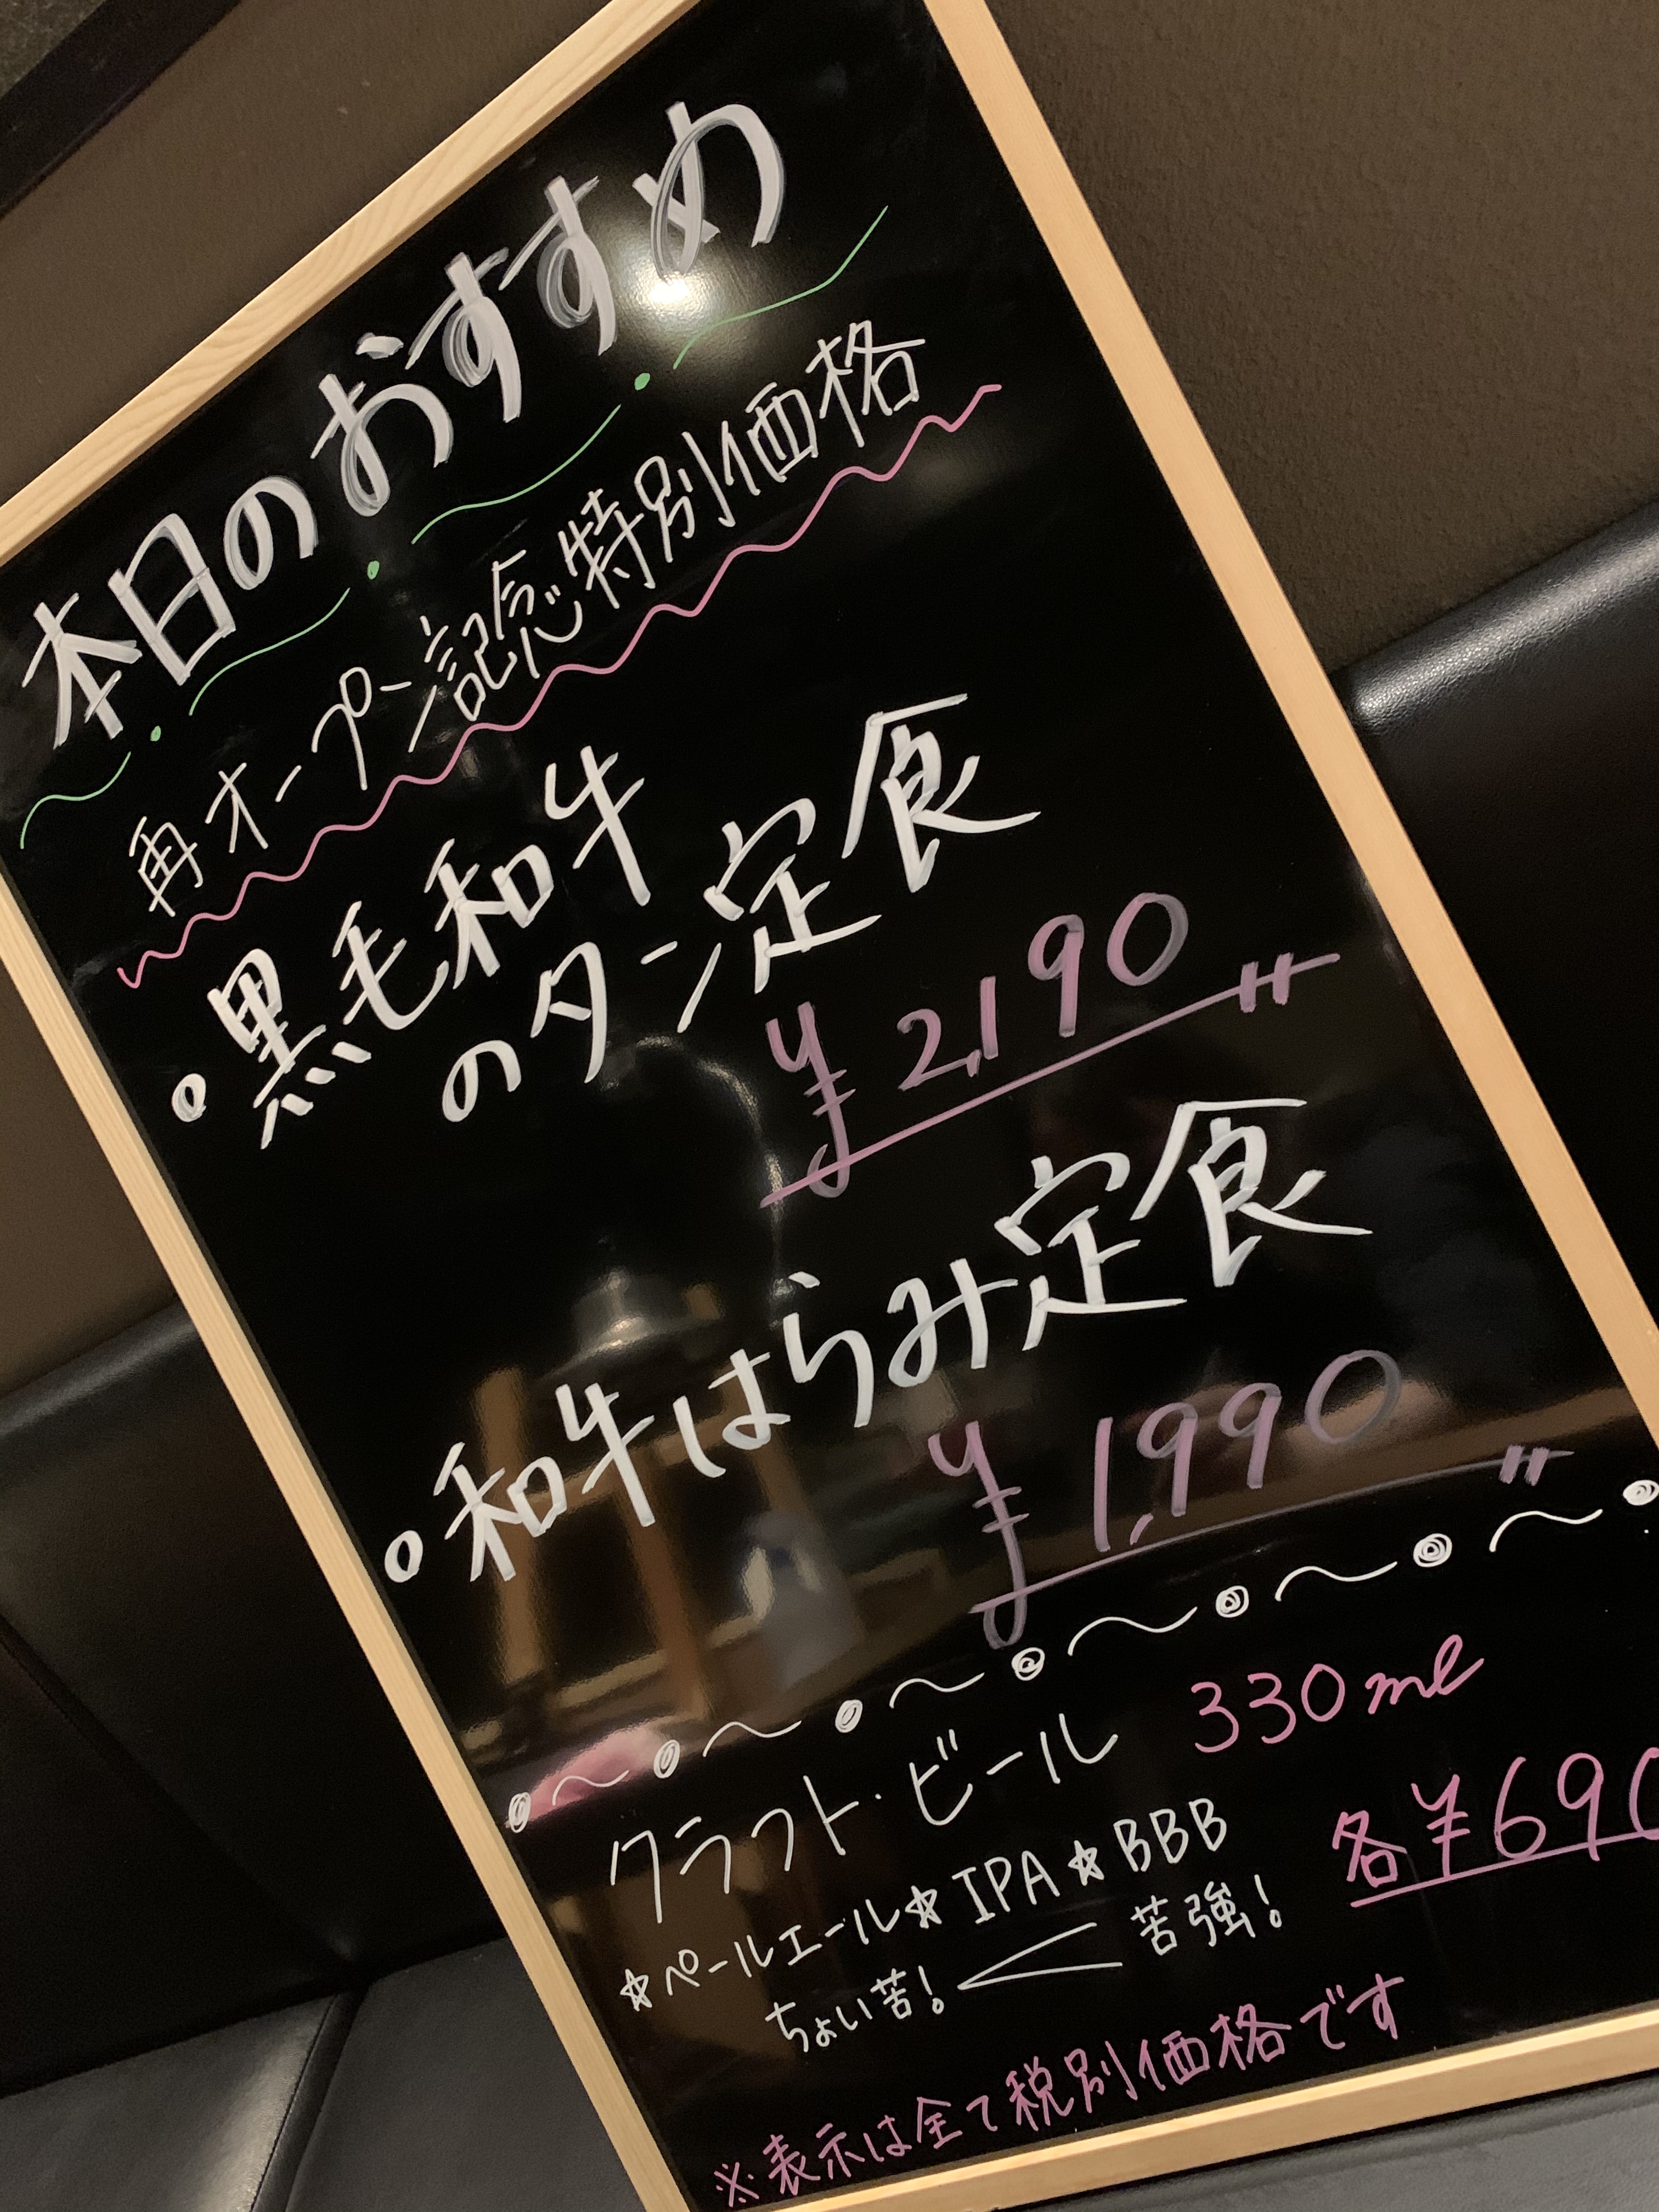 本日のおすすめ
再オープン記念特別価格
黒毛和牛
のタン定食
¥2,190
和牛はらみ定食
¥1,990
クラフト・ビール 330ml
☆ペールエール☆IPA☆BBB 各¥690
ちょい苦! < 苦強!
※表示は全て税別価格です